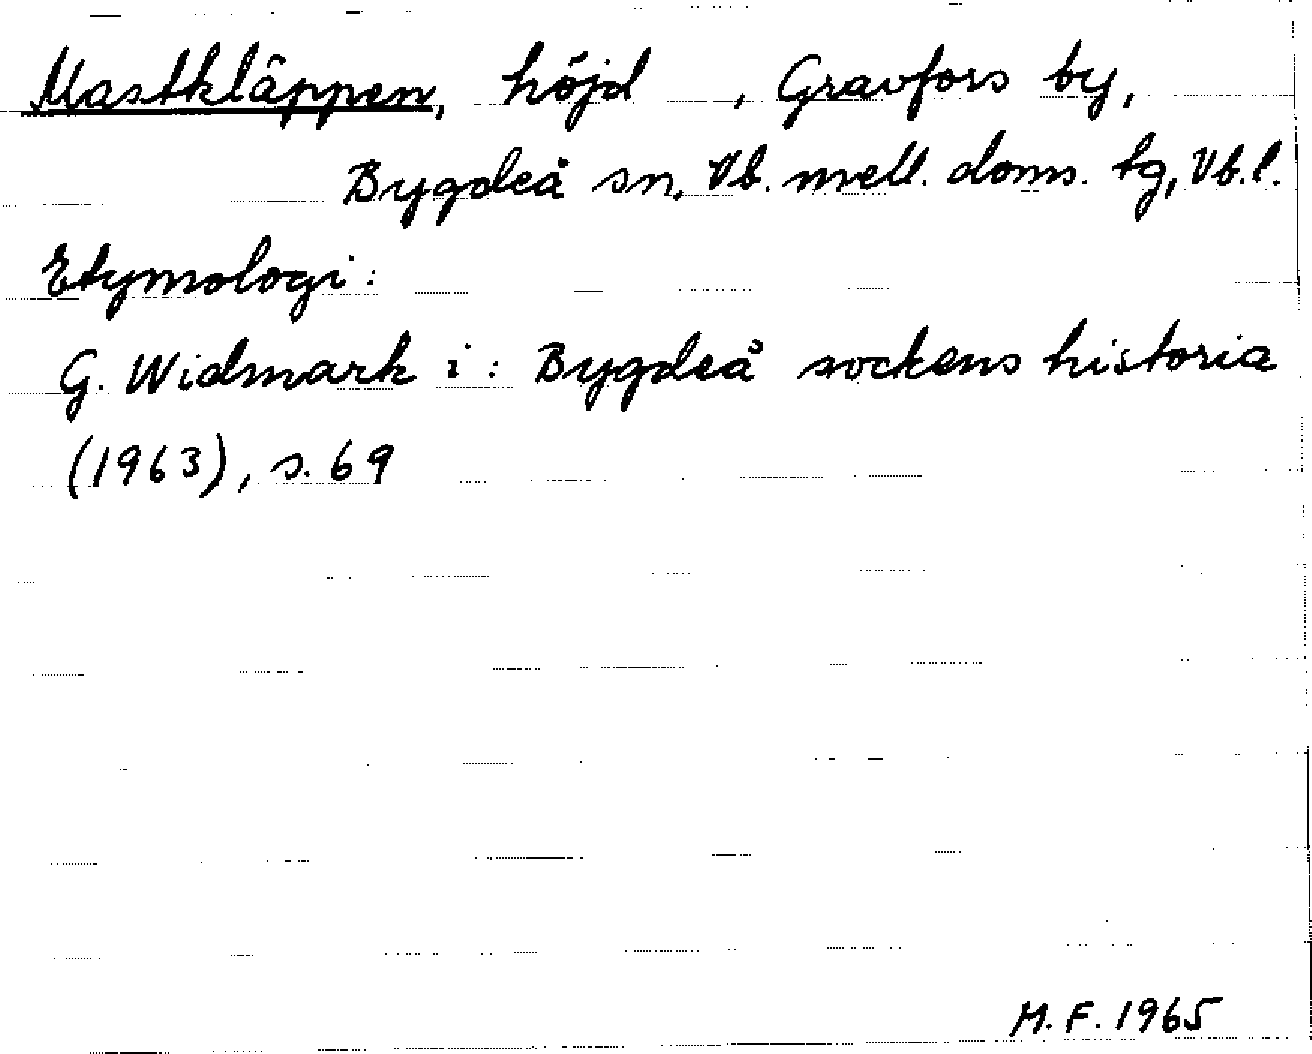 Mastkläppen, höjd , Gravfors by,
Bygdeå sn, Vb. mell. doms. tg, Vb.l.
Etymologi:
G. Widmark i: Bygdeå sockens historia
(1963), s. 69
M. F. 1965